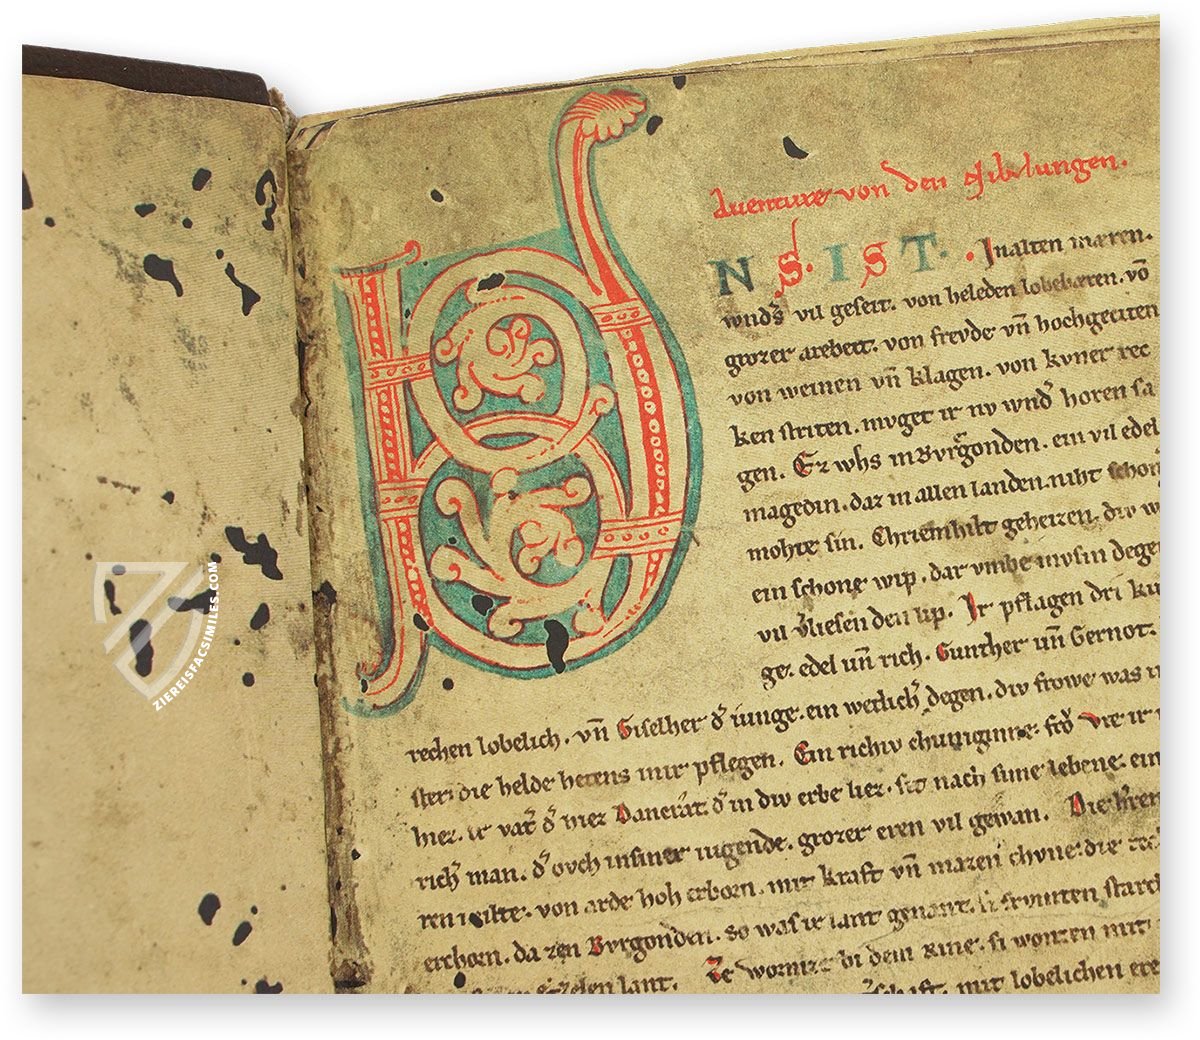 Auenture von den Nibelungen.
U
NS. IST. Inalten mæren.
wnds̄ vil geseit. von heleden lobebæren. võ
grozer arebeit. von frevde vñ hochgeciten
von weinen vñ klagen. von kvner rec
ken striten. mvget ir nv wnd̄ horen sa
gen. Ez whs inBvrgonden. ein vil edel
magedin. daz in allen landen niht schon
mohte sin. Chriemhilt geheizen. div w
ein schone wip. dar vmbe mvsin degen
vil v̄liesen den lip. Ir pflagen dri ku
ge. edel vñ rich. Gunther vñ Gernot.
rechen lobelich. vñ Giselher d̄ iunge. ein wetlich̄ degen. div frowe was i
ster. die helde hetens inir pflegen. Ein richiv chuniginne. frō Vte ir
hiez. ir vat̄ d̄ hiez Dancrat. d̄ in div erbe liez. sit nach sime lebene. ein
rich̄ man. d̄ ovch insiner iugende. grozer eren vil gewan. Die h̄ren
ren milte. von arde hoh erborn. mit kraft vñ mazen chvne. die
erchorn. da zen Bvrgonden. so was ir lant genant. si frvmten starch
lant. Ze wormze bi dem Rine. si wonten mit
mit lobelichen ere
ZIEREISFACSIMILES.COM